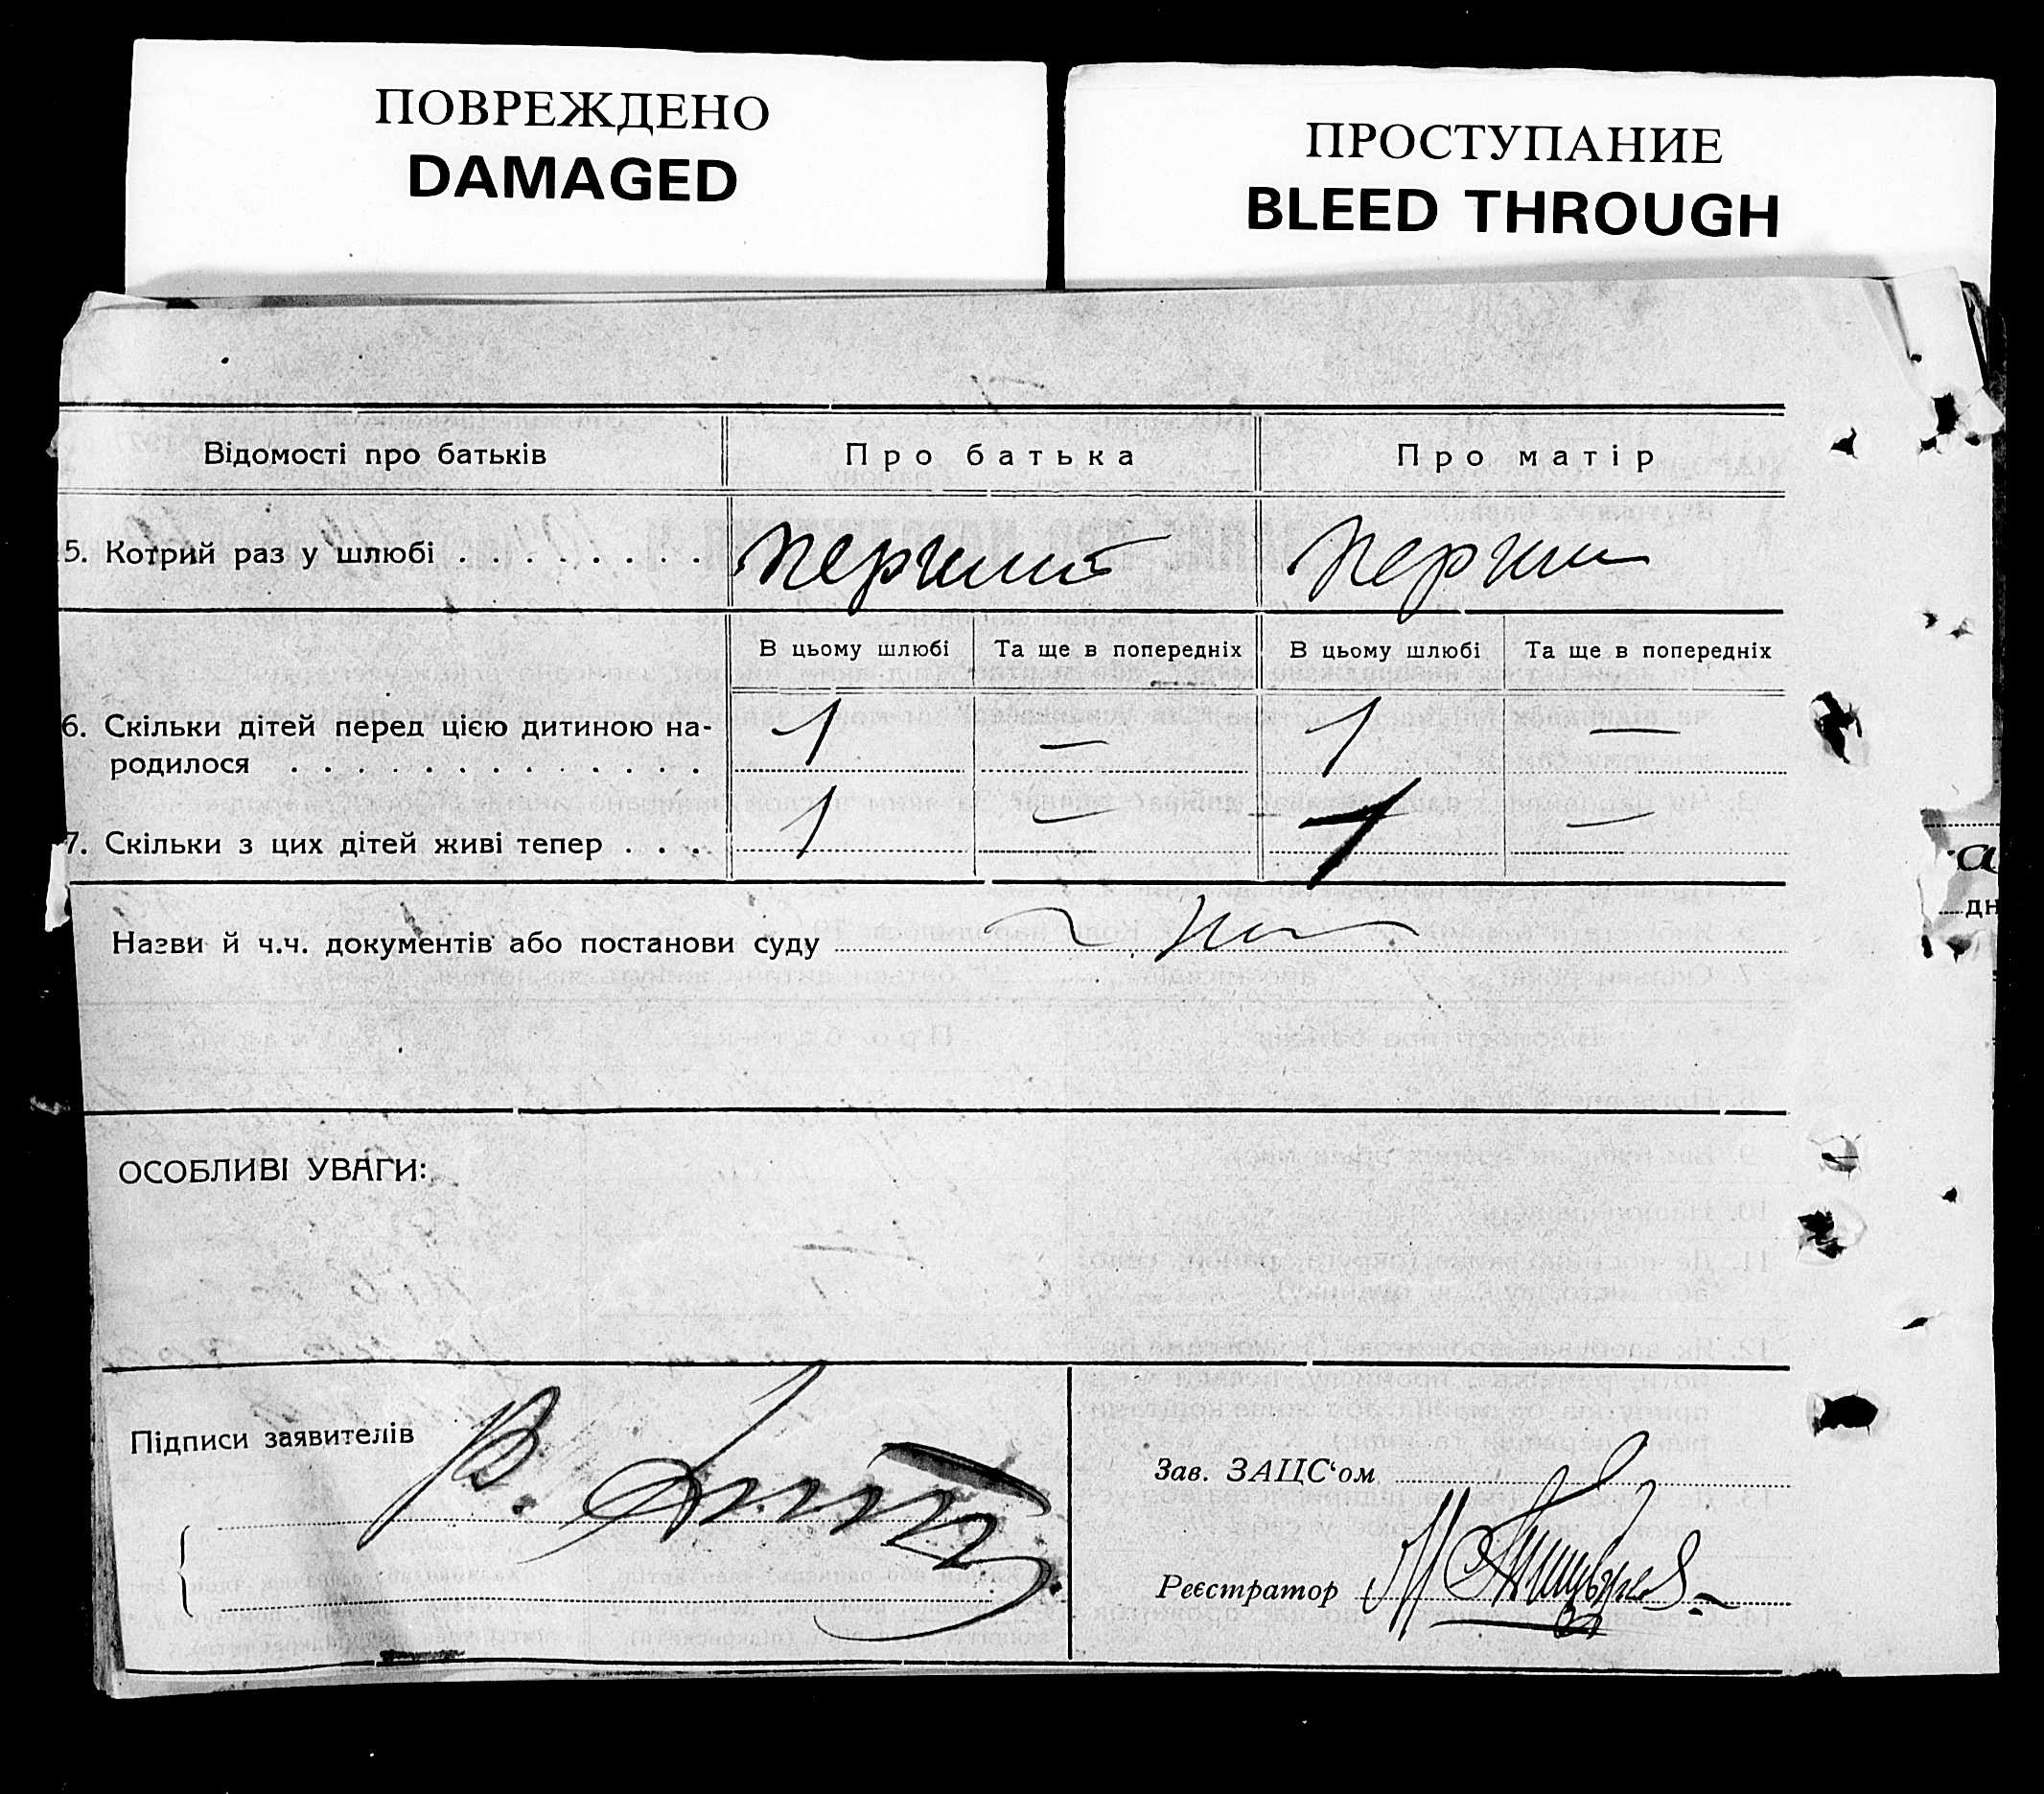 ПОВРЕЖДЕНО
DAMAGED
ПРОСТУПАНИЕ
BLEED THROUGH
Відомості про батьків Про батька Про матір
5. Котрий раз у шлюбі . . . . . . . . перший перши
В цьому шлюбі Та ще в попередніх В цьому шлюбі Та ще в попередніх
6. Скільки дітей перед цією дитиною на- 1 — 1 —
родилося . . . . . . . . . . . . .
7. Скільки з цих дітей живі тепер . . . 1 — 1 —
Назви й ч.ч. документів або постанови суду
ОСОБЛИВІ УВАГИ:
Підписи заявителів В.
Зав. ЗАЦС‘ом
Реєстратор